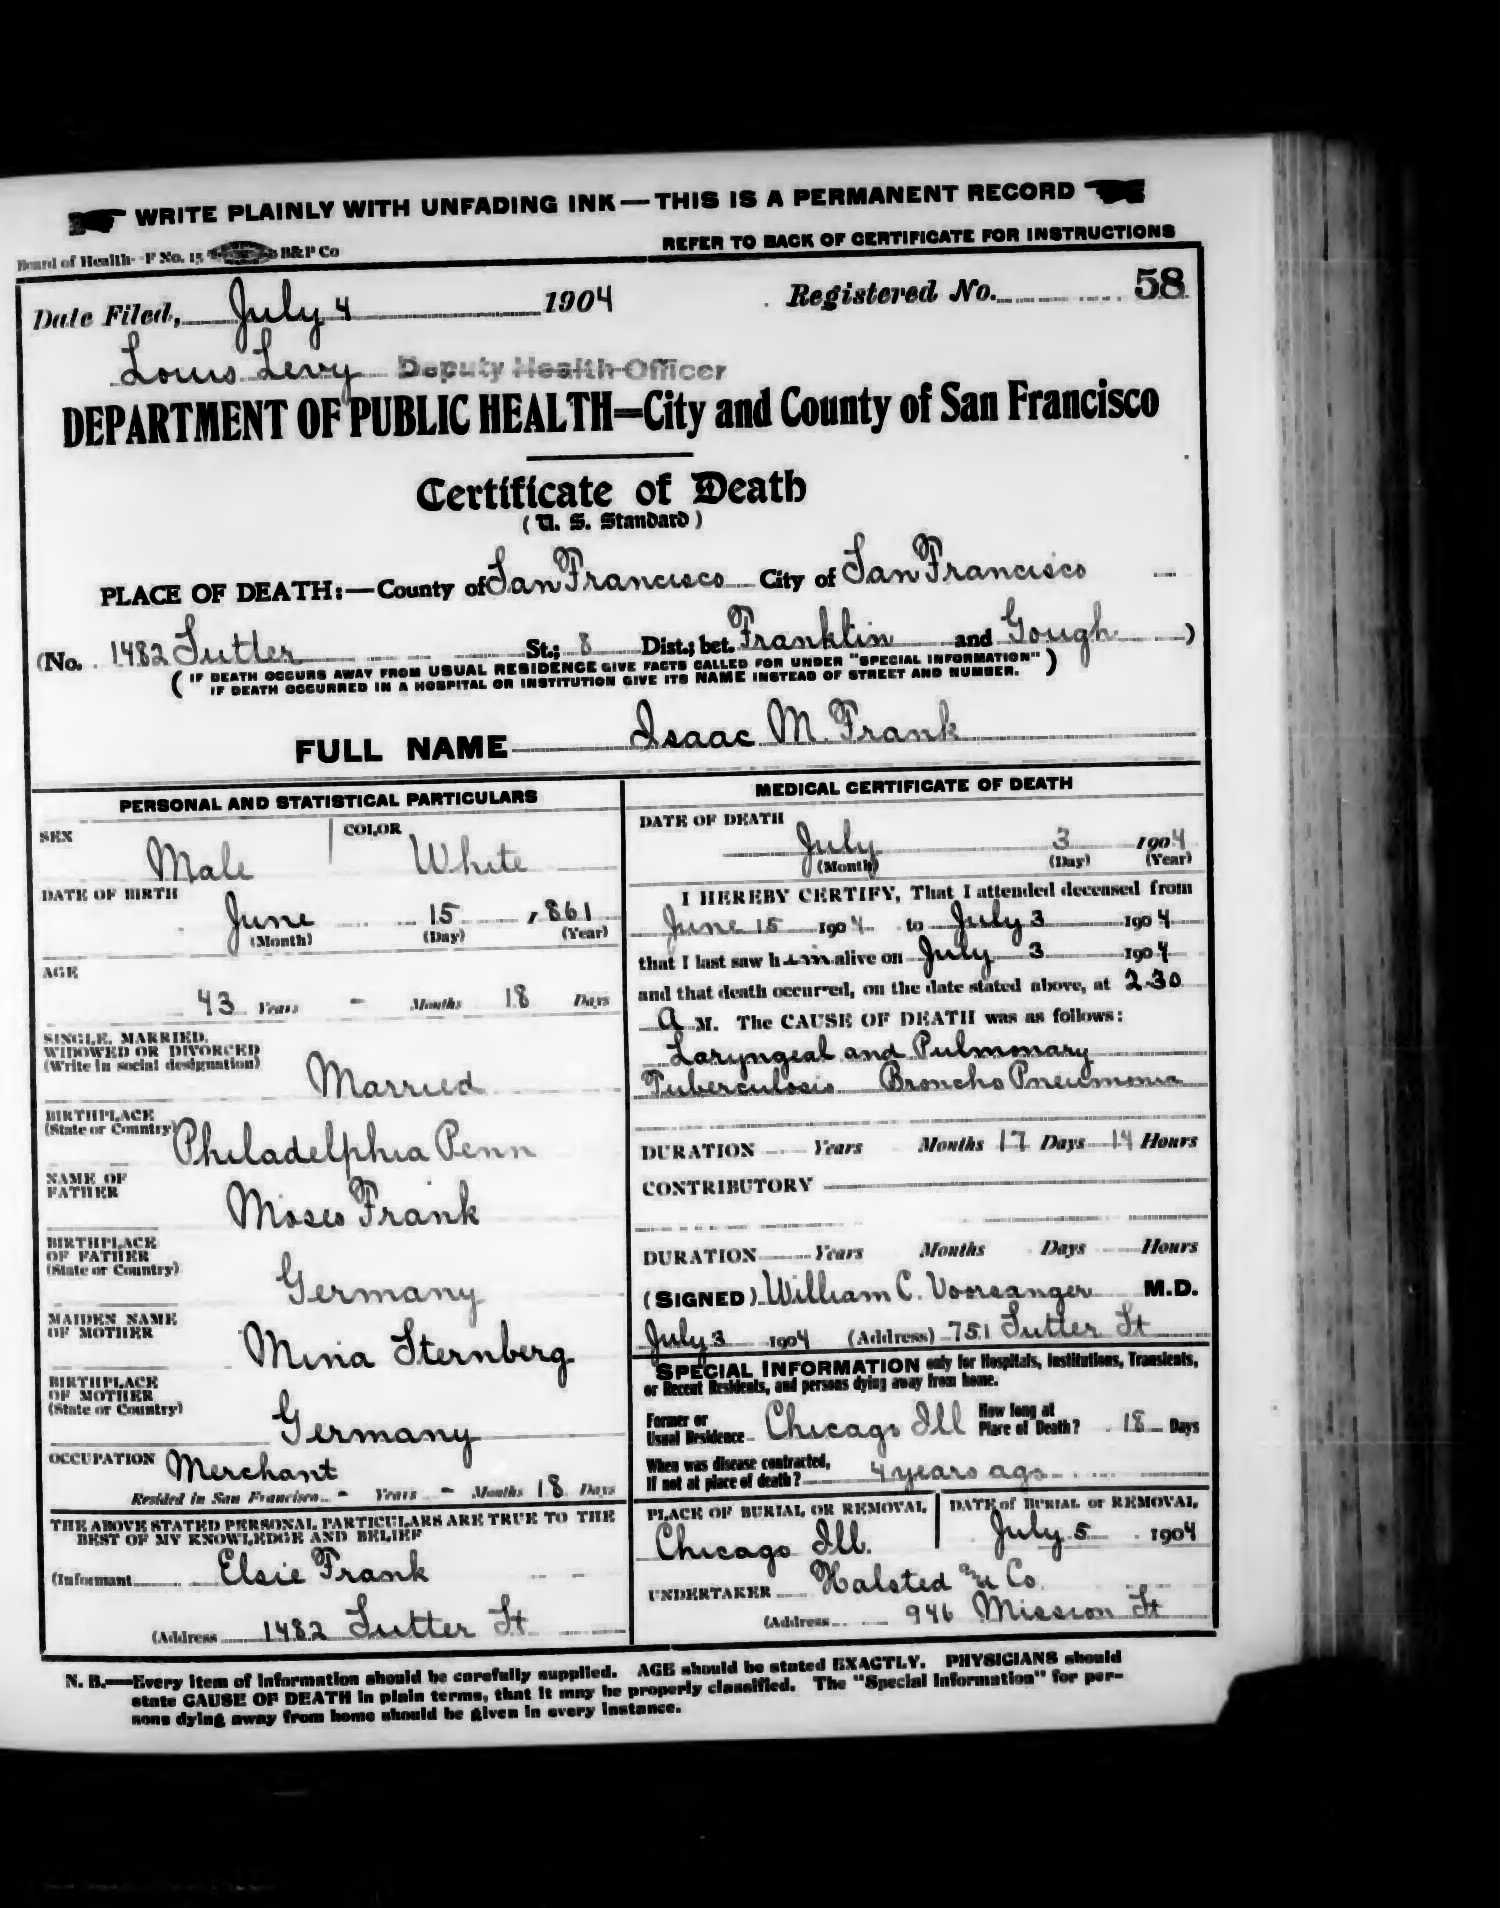 WRITE PLAINLY WITH UNFADING INK—THIS IS A PERMANENT RECORD
Board of Health—F No. 15 B&P Co
REFER TO BACK OF CERTIFICATE FOR INSTRUCTIONS
Date Filed, July 4 1904 Registered No. 58
Louis Levy Deputy Health Officer
DEPARTMENT OF PUBLIC HEALTH—City and County of San Francisco
Certificate of Death
(U. S. Standard)
PLACE OF DEATH:—County of San Francisco City of San Francisco
(No. 1482 Sutter St.; 8 Dist.; bet. Franklin and Gough )
( IF DEATH OCCURS AWAY FROM USUAL RESIDENCE GIVE FACTS CALLED FOR UNDER "SPECIAL INFORMATION" )
IF DEATH OCCURRED IN A HOSPITAL OR INSTITUTION GIVE ITS NAME INSTEAD OF STREET AND NUMBER.
FULL NAME Isaac M. Frank
PERSONAL AND STATISTICAL PARTICULARS
SEX Male COLOR White
DATE OF BIRTH
June 15 1861
(Month) (Day) (Year)
AGE
43 Years - Months 18 Days
SINGLE, MARRIED,
WIDOWED OR DIVORCED
(Write in social designation)
Married
BIRTHPLACE
(State or Country) Philadelphia Penn
NAME OF
FATHER Moses Frank
BIRTHPLACE
OF FATHER
(State or Country) Germany
MAIDEN NAME
OF MOTHER Mina Sternberg
BIRTHPLACE
OF MOTHER
(State or Country) Germany
OCCUPATION Merchant
Resided in San Francisco - Years - Months 18 Days
THE ABOVE STATED PERSONAL PARTICULARS ARE TRUE TO THE
BEST OF MY KNOWLEDGE AND BELIEF
(Informant Elsie Frank
(Address 1482 Sutter St
MEDICAL CERTIFICATE OF DEATH
DATE OF DEATH
July 3 1904
(Month) (Day) (Year)
I HEREBY CERTIFY, That I attended deceased from
June 15 1904 to July 3 1904
that I last saw him alive on July 3 1904
and that death occurred, on the date stated above, at 2-30
A M. The CAUSE OF DEATH was as follows:
Laryngeal and Pulmonary
Tuberculosis Broncho Pneumonia
DURATION Years Months 17 Days 14 Hours
CONTRIBUTORY
DURATION Years Months Days Hours
(SIGNED) William C. Voorsanger M.D.
July 3 1904 (Address) 751 Sutter St
SPECIAL INFORMATION only for Hospitals, Institutions, Transients,
or Recent Residents, and persons dying away from home.
Former or
Usual Residence Chicago Ill How long at
Place of Death? 18 Days
When was disease contracted,
If not at place of death? 4 years ago
PLACE OF BURIAL OR REMOVAL
Chicago Ill.
DATE of BURIAL or REMOVAL
July 5 1904
UNDERTAKER Halsted & Co.
(Address 946 Mission St
N. B.—Every item of information should be carefully supplied. AGE should be stated EXACTLY. PHYSICIANS should
state CAUSE OF DEATH in plain terms, that it may be properly classified. The "Special Information" for per-
sons dying away from home should be given in every instance.